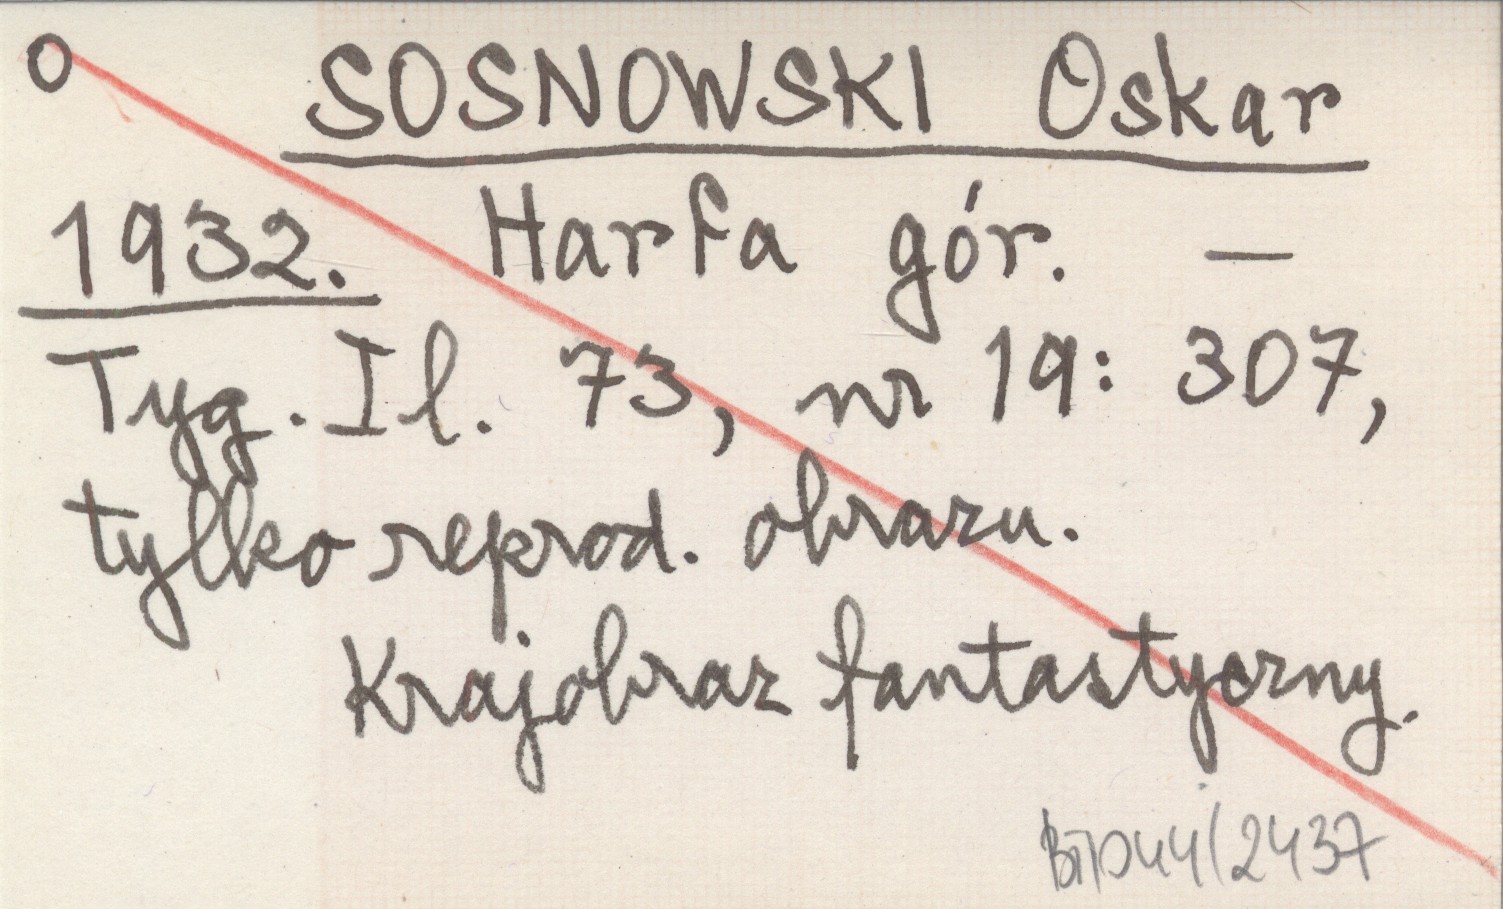 O SOSNOWSKI Oskar
1932. Harfa gór. —
Tyg. Il. 73, nr 19: 307,
tylko reprod. obrazu.
Krajobraz fantastyczny.
2437